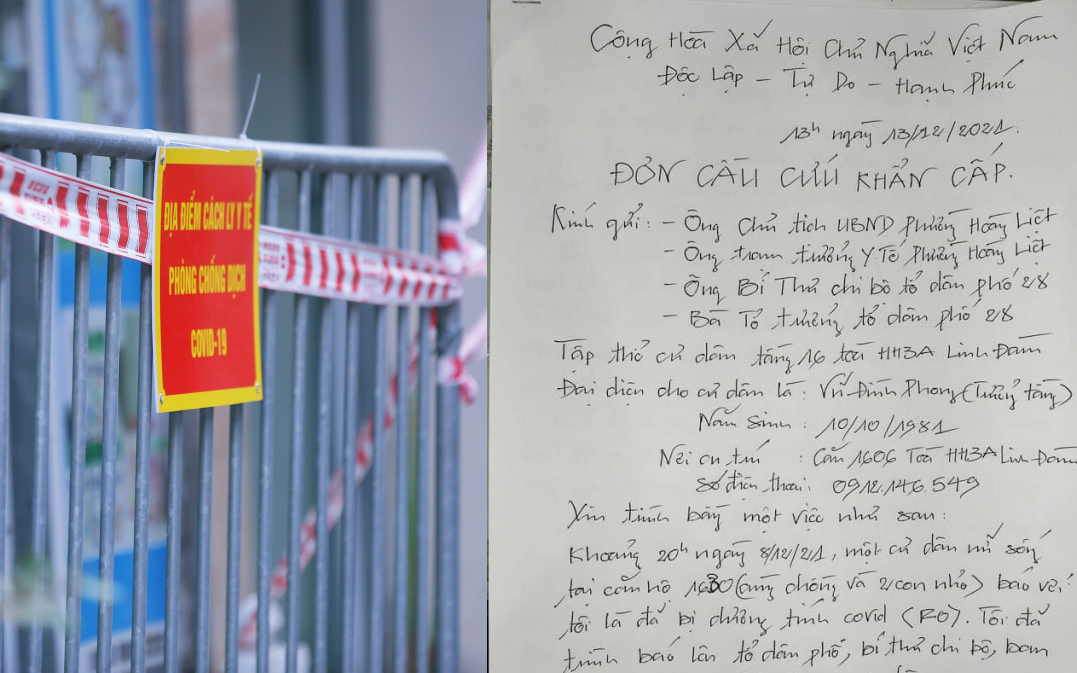 ĐỊA ĐIỂM CÁCH LY Y TẾ
PHÒNG CHỐNG DỊCH
COVID-19
Cộng Hoà Xã Hội Chủ Nghĩa Việt Nam
Độc Lập - Tự Do - Hạnh Phúc
13h ngày 13/12/2021.
ĐƠN CẦU CỨU KHẨN CẤP.
Kính gửi: - Ông Chủ tịch UBND Phường Hoàng Liệt
- Ông trạm trưởng Y Tế Phường Hoàng Liệt
- Ông Bí Thư chi bộ tổ dân phố 28
- Bà Tổ trưởng tổ dân phố 28
Tập thể cư dân tầng 16 toà HH3A Linh Đàm
Đại diện cho cư dân là: Vũ Đình Phong (Trưởng tầng)
Năm Sinh: 10/10/1981
Nơi cư trú: Căn 1606 Toà HH3A Linh Đàm
Số điện thoại: 0912.146.549
Xin trình bày một việc như sau:
Khoảng 20h ngày 8/12/21, một cư dân nữ sống
tại căn hộ 1630 (cùng chồng và 2 con nhỏ) báo với
tôi là đã bị dương tính covid (F0). Tôi đã
trình báo lên tổ dân phố, bí thư chi bộ, ban